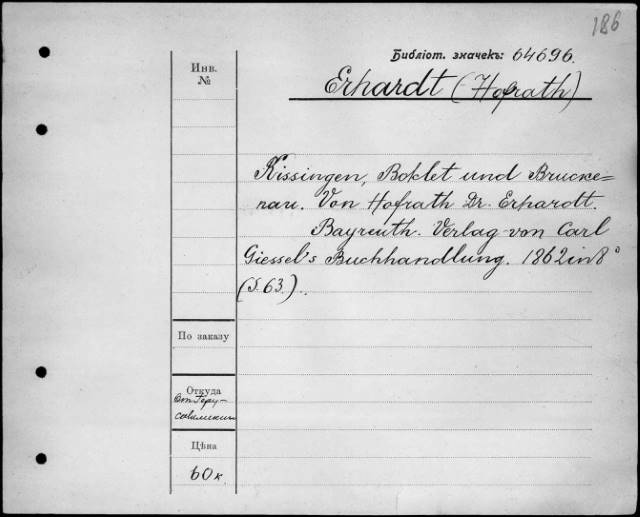 186
Библіот. значекъ: 64696.
Инв.
№
Erhardt (Hofrath)
Kissingen, Boklet und Brucke=
nau. Von Hofrath Dr. Erhardt.
Bayreuth. Verlag von Carl
Giessel's Buchhandlung. 1862 in 8°
(S. 63.).
По заказу
Откуда
Цѣна
60 к.